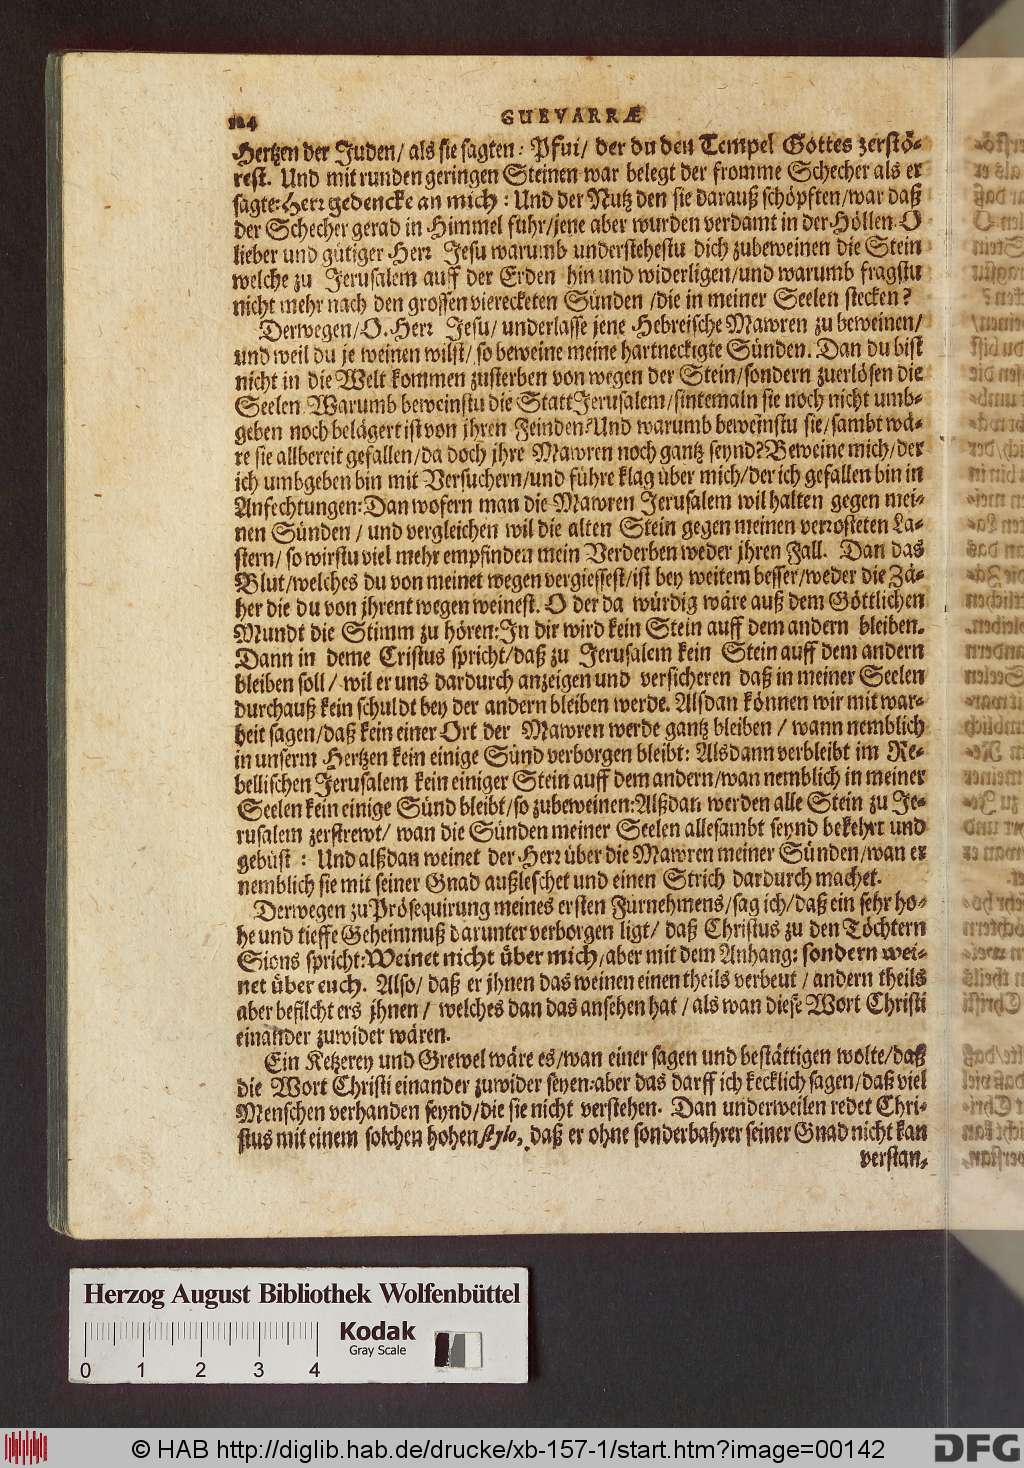 124 GUEVARRÆ
Hertzen der Juden/ als sie sagten: Pfui/ der du den Tempel Gottes zerstö-
rest. Und mit runden geringen Steinen war belegt der fromme Schecher als er
sagte: Herr gedencke an mich: Und der Nutz den sie darauß schöpften/ war daß
der Schecher gerad in Himmel fuhr/ jene aber wurden verdamt in der Höllen. O
lieber und gütiger Herr Jesu warumb understehestu dich zubeweinen die Stein
welche zu Jerusalem auff der Erden hin und widerligen/ und warumb fragstu
nicht mehr nach den grossen viereckten Sünden/ die in meiner Seelen stecken?
Derwegen/ O. Herr Jesu/ underlasse jene Hebreische Mawren zu beweinen/
und weil du je weinen wilst/ so beweine meine hartneckigte Sünden. Dan du bist
nicht in die Welt kommen zusterben von wegen der Stein/ sondern zuerlösen die
Seelen. Warumb beweinstu die Statt Jerusalem/ sintemaln sie noch nicht umb-
geben noch belägert ist von jhren Feinden? Und warumb beweinstu sie/ sambt wä-
re sie allbereit gefallen/ da doch jhre Mawren noch gantz seynd? Beweine mich/ der
ich umbgeben bin mit Versuchern/ und führe klag über mich/ der ich gefallen bin in
Anfechtungen: Dan wofern man die Mawren Jerusalem wil halten gegen mei-
nen Sünden/ und vergleichen wil die alten Stein gegen meinen verrosteten La-
stern/ so wirstu viel mehr empfinden mein Verderben weder jhren Fall. Dan das
Blut/ welches du von meinet wegen vergiessest/ ist bey weitem besser/ weder die Zä-
her die du von jhrent wegen weinest. O der da würdig wäre auß dem Göttlichen
Mundt die Stimm zu hören: In dir wird kein Stein auff dem andern bleiben.
Dann in deme Cristus spricht/ daß zu Jerusalem kein Stein auff dem andern
bleiben soll/ wil er uns dardurch anzeigen und versicheren daß in meiner Seelen
durchauß kein schuldt bey der andern bleiben werde. Alsdan können wir mit war-
heit sagen/ daß kein einer Ort der Mawren werde gantz bleiben/ wann nemblich
in unserm Hertzen kein einige Sünd verborgen bleibt: Alsdann verbleibt im Re-
bellischen Jerusalem kein einiger Stein auff dem andern/ wan nemblich in meiner
Seelen kein einige Sünd bleibt/ so zubeweinen: Alßdan werden alle Stein zu Je-
rusalem zerstrewt/ wan die Sünden meiner Seelen allesambt seynd bekehrt und
gebüst: Und alßdan weinet der Herr über die Mawren meiner Sünden/ wan er
nemblich sie mit seiner Gnad außleschet und einen Strich dardurch machet.
Derwegen zu Prosequirung meines ersten Fürnehmens/ sag ich/ daß ein sehr ho-
he und tieffe Geheimnuß darunter verborgen ligt/ daß Christus zu den Töchtern
Sions spricht: Weinet nicht über mich/ aber mit dem Anhang: sondern wei-
net über euch. Also/ daß er jhnen das weinen einen theils verbeut/ andern theils
aber befilcht ers jhnen/ welches dan das ansehen hat/ als wan diese Wort Christi
einander zuwider wären.
Ein Ketzerey und Grewel wäre es/ wan einer sagen und bestättigen wolte/ daß
die Wort Christi einander zuwider seyen: aber das darff ich kecklich sagen/ daß viel
Menschen verhanden seynd/ die sie nicht verstehen. Dan underweilen redet Chri-
stus mit einem solchen hohen stylo, daß er ohne sonderbahrer seiner Gnad nicht kan
verstan-
Herzog August Bibliothek Wolfenbüttel
Kodak
Gray Scale
0 1 2 3 4
© HAB http://diglib.hab.de/drucke/xb-157-1/start.htm?image=00142
DFG